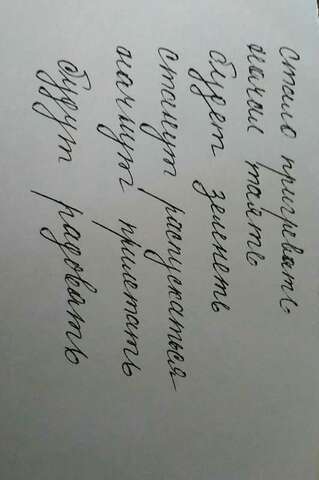 стало пригревать
начал таять
будет зеленеть
станут распускаться
начнут прилетать
будут радовать